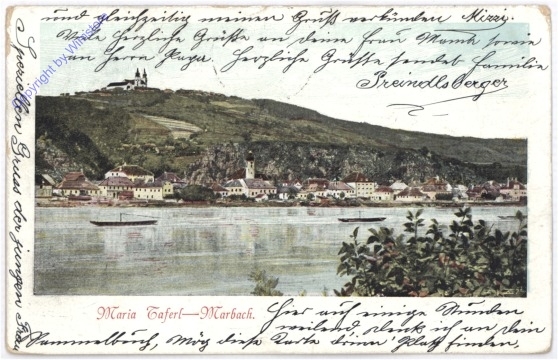 und gleichzeitig meinen Gruß verkünden Mizzy.
Viele herzliche Grüße an deine Frau Mama sowie
an Herrn Papa. Herzliche Grüße sendet Familie
Preindlsberger
Speziellen Gruss der jungen Frau
Copyright by
Maria Taferl—Marbach.
Hier auf einige Stunden
weilend denk ich an dein
Sammelbuch, Mög diese Karte drinn' Platz finden,